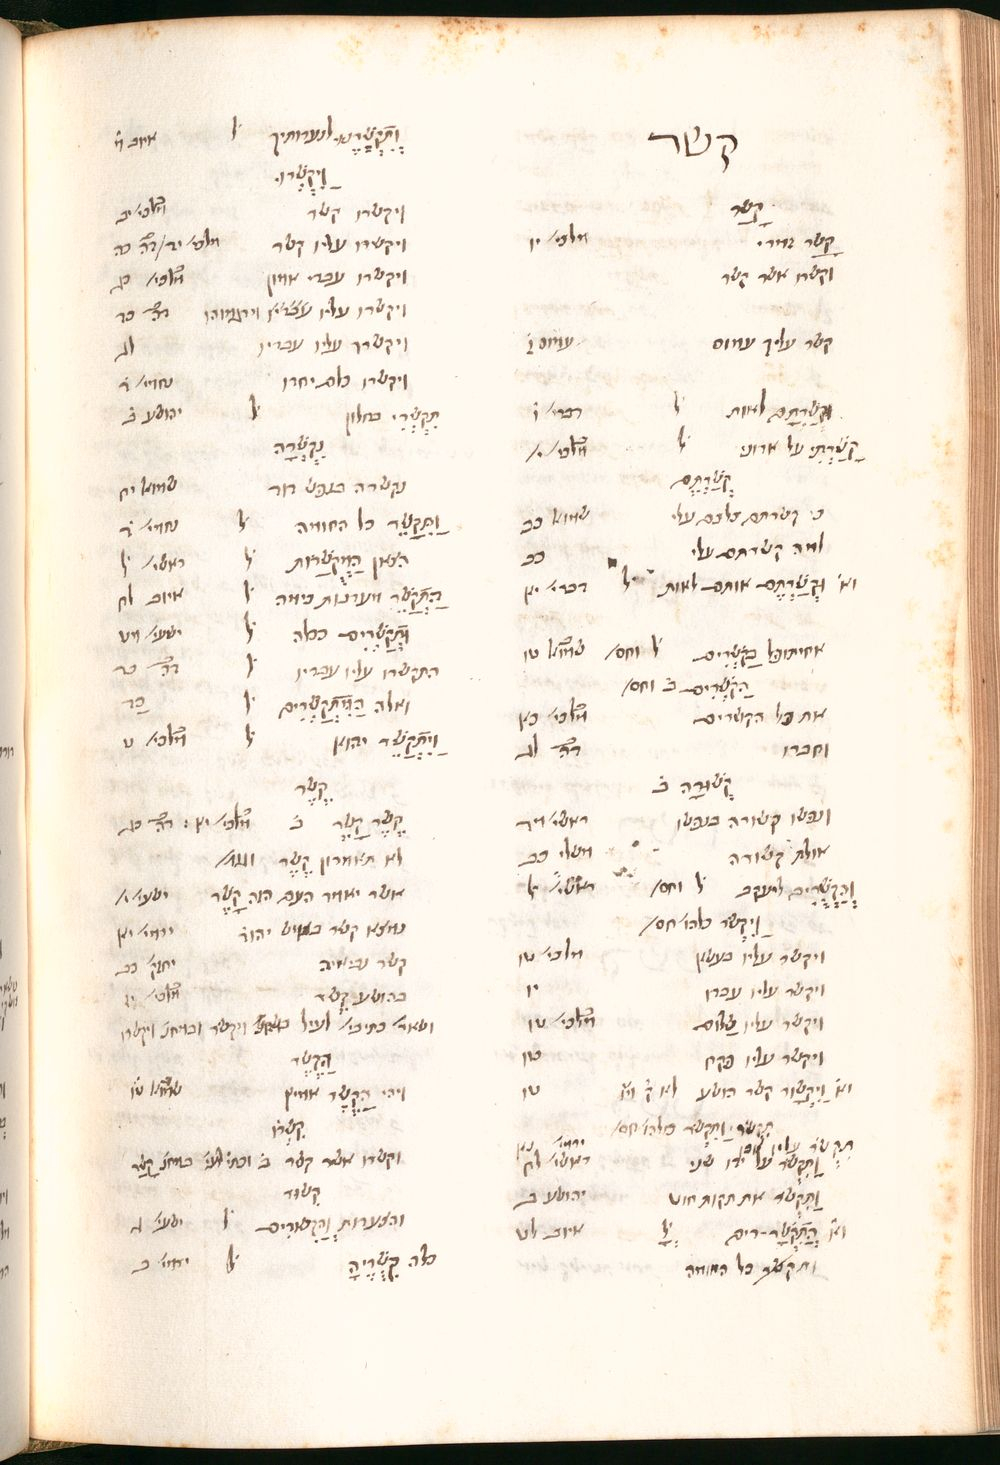 קשר
קָשַׁר
קָשַׁר זמרי מלכי׳ יו
וקשרו אשר קשר
קשר עליך עמוס עמוס ז̇
וּקְשַׁרְתָּם לאות ל̇ דברי׳ ו̇
קָשַׁרְתִּי על אדוני ל̇ מ̇לכי׳ י׳
קְשַׁרְתֶּם
כי קשרתם כלכם עלי שמוא׳ כב
למה קשרתם עלי כב
וא̇ וּקְשַׁרְתֶּם אותם לאות ל̇ דברי׳ יא
אחיתופל בַּקֹּשְׁרִים ל̇ וחס׳ ש̇מוא טו
הַקֹּשְׁרִים ב̇ וחס׳
את כל הקשרים מ̇לכי׳ כא
וחברו דה̇ לג
קְשׁוּרָה ב̇
ונפשו קשורה בנפשו ראשי׳ מד
אולת קשורה משלי כב
וְהַקְּשֻׁרִים ליעקב ל̇ וחס׳ ראשי׳ ל
וַיִּקְשֹׁר כלהו חס׳
ויקשר עליו בעשא מלכי׳ טו
ויקשר עליו עבדו יו
ויקשר עליו שלום מ̇לכי׳ טו
ויקשר עליו פקח טו
וא̇ וַיִּקְשָׁר קשר הושע טו
תִקְשֹׁר וַתִּקְשֹׁר כולהו חס׳
וַתִּקְשֹׁר על ידו שני ראשי׳ לח
וַתִּקְשֹׁר את תקות חוט יהושע ב
וא̇ הַתְקַשֵּׁר דים איוב לט
ותקשר כל החומה
וְתִקְשְׁרֶנּוּ לנערותיך ל̇ איוב מ̇
וַיִּקְשְׁרוּ
ויקשרו קשר מ̇לכי׳ יב
ויקשרו עליו קשר מלכי׳ יד/דה̇ כה
ויקשרו עבדי אמון מ̇לכי׳ כג
ויקשרו עליו וירגמוהו דה̇ כד
ויקשרו עליו עבדיו לג
ויקשרו כלם יחדו נחמי׳ ד̇
תִּקְשְׁרִי בחלון ל̇ יהושע ב̇
נִקְשְׁרָה
נקשרה בנפש דוד שמוא׳ יח
וַתִּקָּשֵׁר כל החומה ל̇ נחמי׳ ג̇
הצאן הַמְקֻשָּׁרוֹת ל̇ ראשי׳ ל̇
הַתְקַשֵּׁר מערכות כימה ל̇ איוב לח
וּתְקַשְּׁרִים ככלה ל̇ ישעי׳ מט
התקשרו עליו עבדיו ל̇ דה̇ כד
ואלה הַמִּתְקַשְּׁרִים ל̇ כד
וַיִּתְקַשֵּׁר יהוא ל̇ מ̇לכי׳ ט
קֶשֶׁר
קֶשֶׁר קָשֶׁר ב̇ מ̇לכי׳ יא : דה̇ כג
לא תאמרון קֶשֶׁר
אשר יאמר העם הזה קָשֶׁר ישעי׳ ׳
נמצא קשר באיש יהוד׳ ירמי׳ יא
קשר נביאיה יחזק׳ כב
בהושע קֶשֶׁר מ̇לכי׳ יז
ושאר׳ כתיבי׳ לעיל
הַקֶּשֶׁר
ויהי הַקֶּשֶׁר אמיץ ש̇מוא טו̇
קִשְׁרוֹ
וקשרו אשר קשר ב̇
קשור
והצעירות וְהַקִּשֻּׁרִים ל̇ ישעי׳ ג
כלה קִשֻּׁרֶיהָ ל̇ ירמי׳ ב